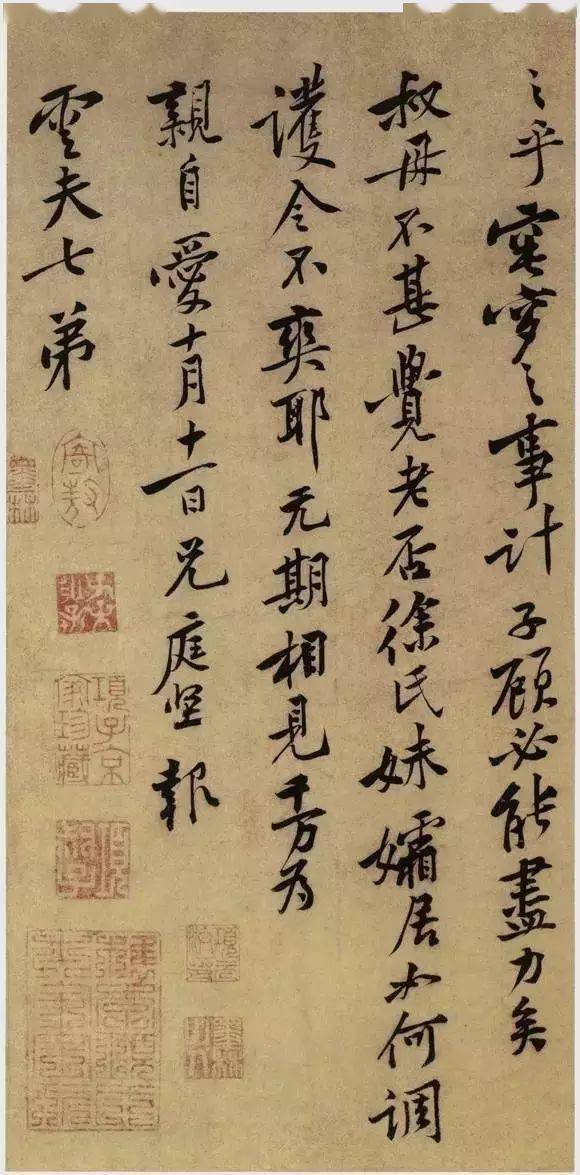 之乎窀穸之事計子顧必能盡力矣
叔母不甚覺老否徐氏妹孀居如何調
護令不爽耶无期相見千万为
親自愛十月十一日兄庭堅報
雲夫七弟
項子京
家珍藏